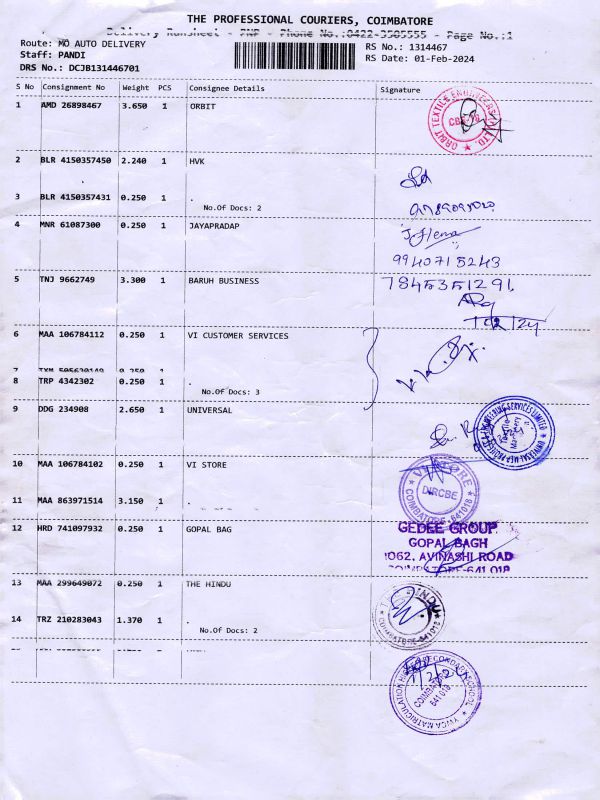 THE PROFESSIONAL COURIERS, COIMBATORE
Delivery Runsheet - PNP - Phone No.:0422-3505555 - Page No.:1
Route: MO AUTO DELIVERY
RS No.: 1314467
Staff: PANDI
RS Date: 01-Feb-2024
DRS No.: DCJB131446701
S No Consignment No Weight PCS Consignee Details Signature
1 AMD 26898467 3.650 1 ORBIT
ORBIT TEXTILE ENGINEERS
LTD.
2 BLR 4150357450 2.240 1 HVK
3 BLR 4150357431 0.250 1 .
No.Of Docs: 2
4 MNR 61087300 0.250 1 JAYAPRADAP
J. Hema
9940715243
5 TNJ 9662749 3.300 1 BARUH BUSINESS
7845351291
1/02/24
6 MAA 106784112 0.250 1 VI CUSTOMER SERVICES
7 1
8 TRP 4342302 0.250 1 .
No.Of Docs: 3
9 DDG 234908 2.650 1 UNIVERSAL
10 MAA 106784102 0.250 1 VI STORE
VI STORE
DIRCBE
COIMBATORE-641018
11 MAA 863971514 3.150 1 .
12 HRD 741097932 0.250 1 GOPAL BAG
GEDEE GROUP
GOPAL BAGH
1062, AVINASHI ROAD
COIMBATORE-641 018
13 MAA 299649072 0.250 1 THE HINDU
THE HINDU
COIMBATORE-641018
14 TRZ 210283043 1.370 1 .
No.Of Docs: 2
YWCA MATRICULATION HIGHER SECONDARY SCHOOL
COIMBATORE
641 018
1/2/24